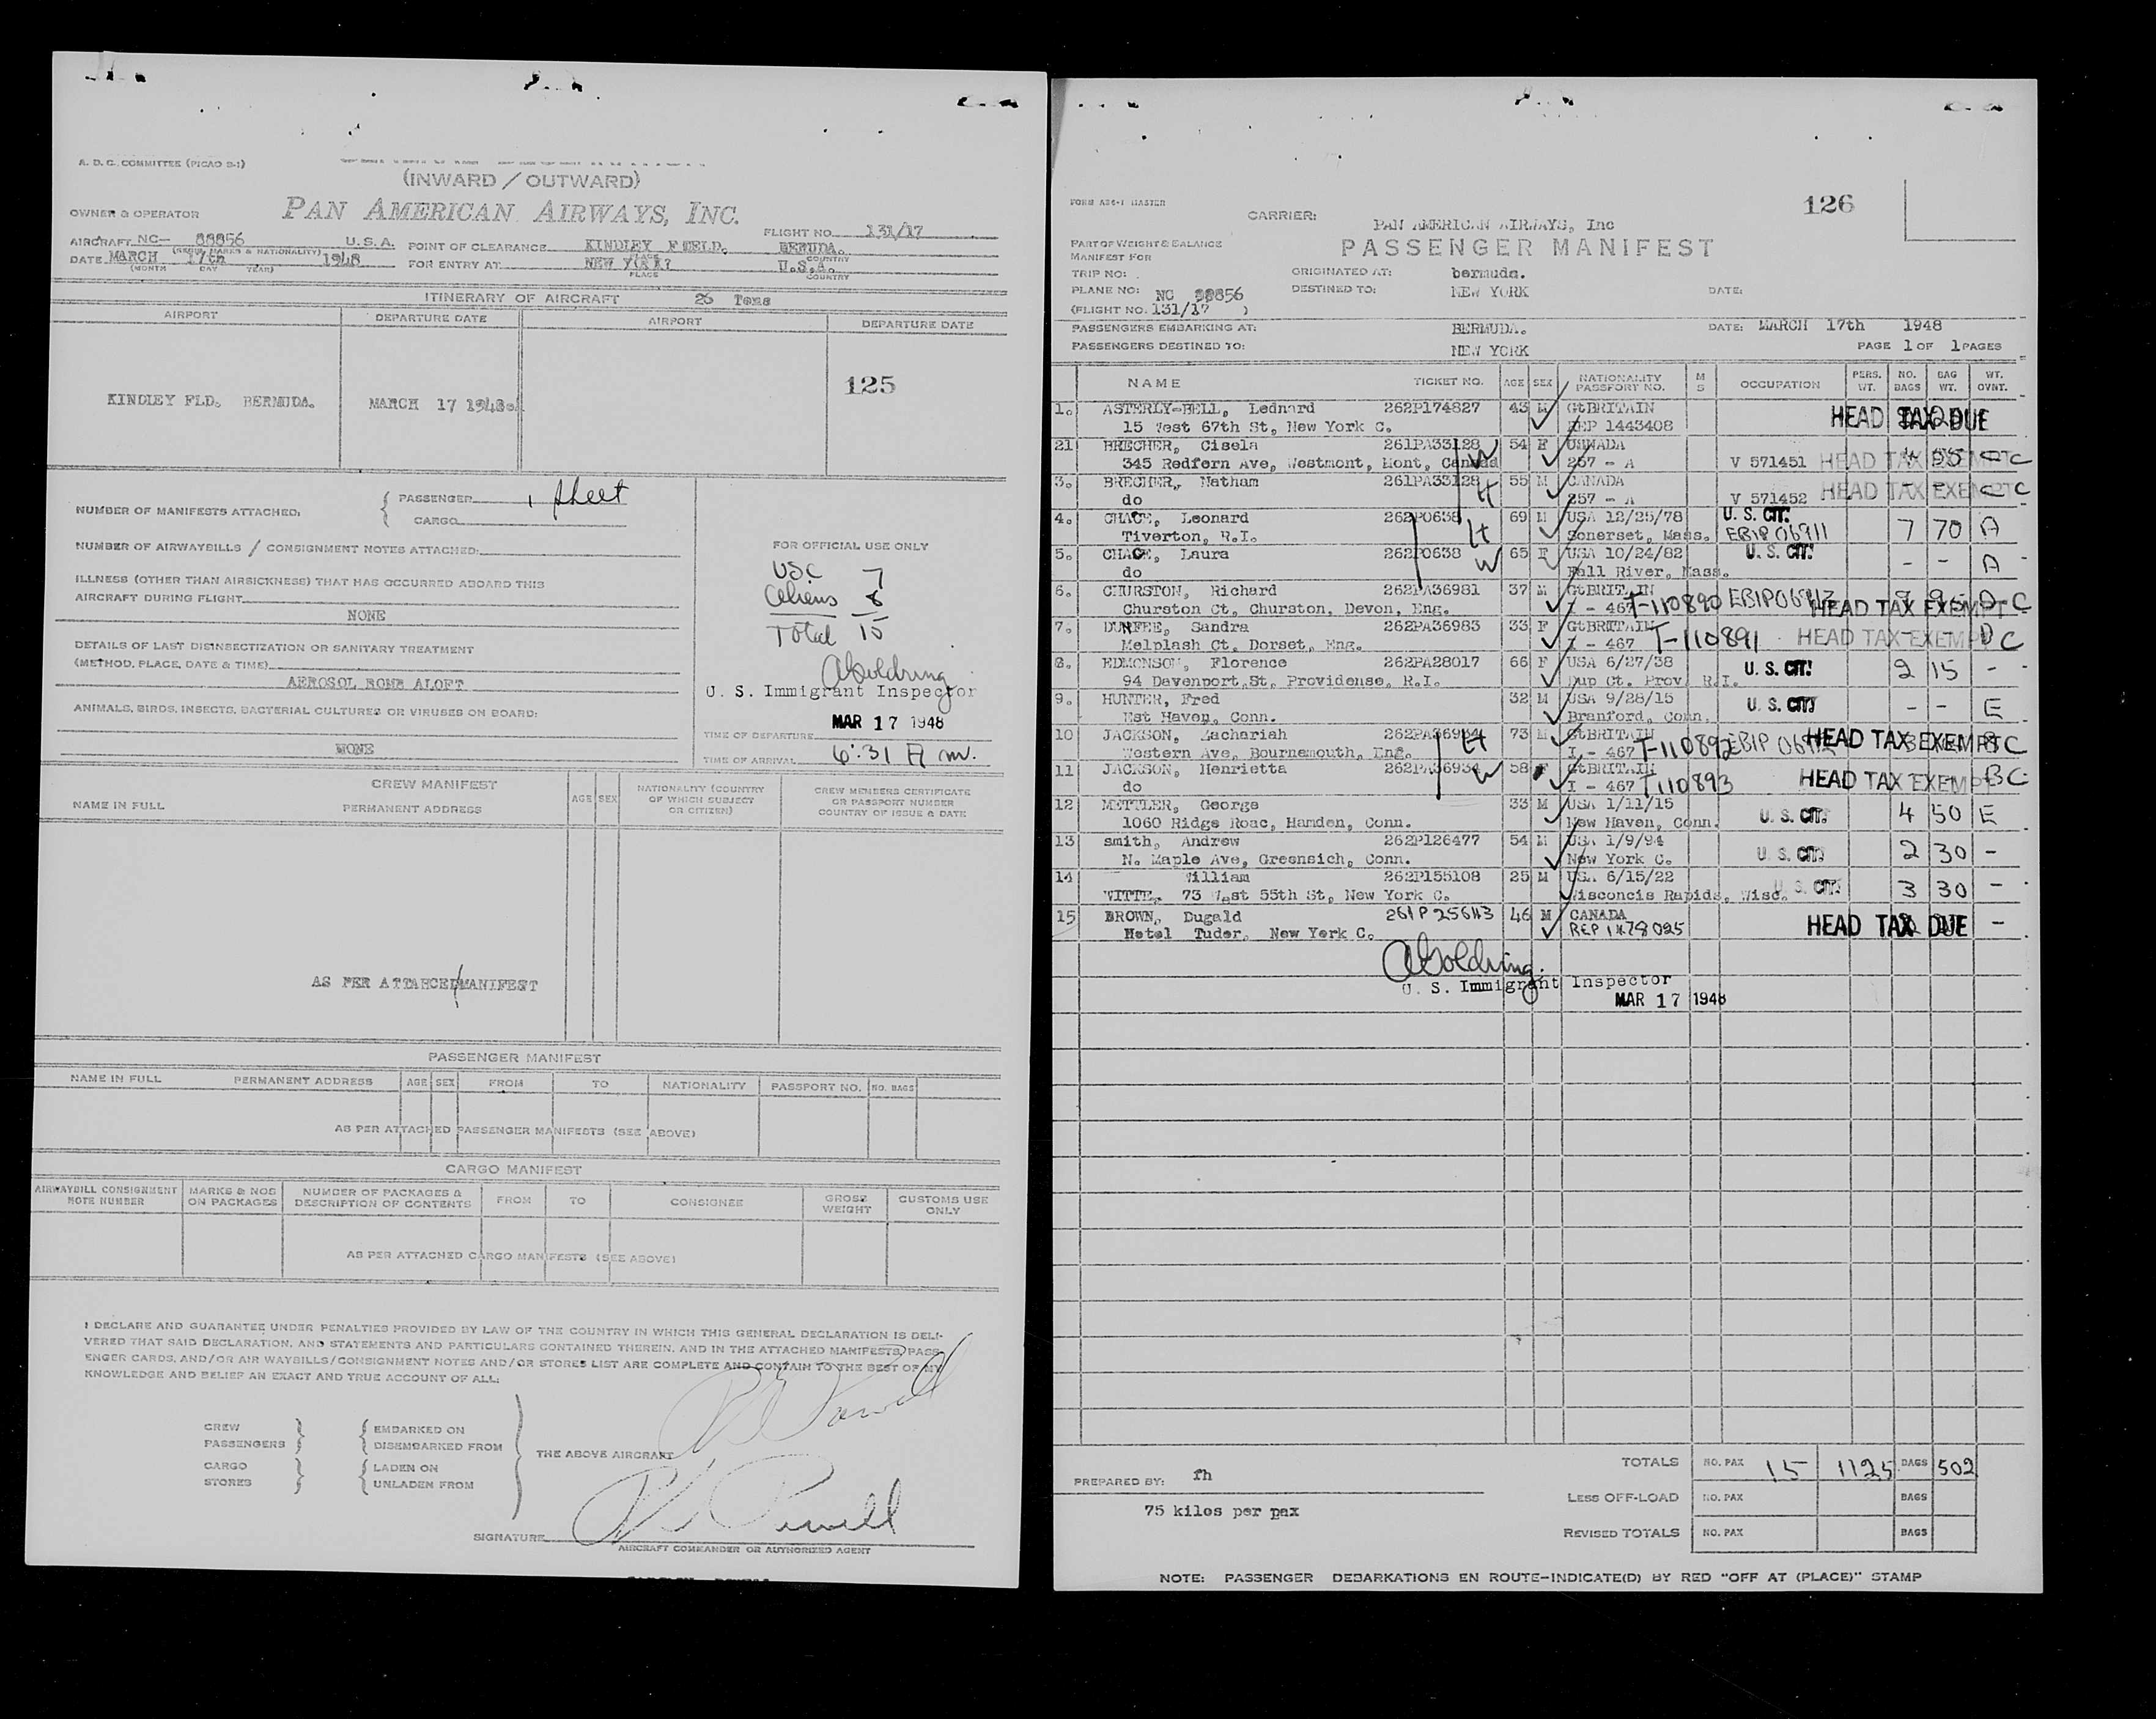 A. D. C. COMMITTEE (PICAO S-1)
(INWARD / OUTWARD)
OWNER & OPERATOR PAN AMERICAN AIRWAYS, INC.
FLIGHT NO. 131/17
AIRCRAFT NC- 88856 U.S.A. POINT OF CLEARANCE KINDLEY FIELD. BERUDA.
(REGIS. MARKS & NATIONALITY) PLACE COUNTRY
DATE MARCH 17th 1948 FOR ENTRY AT NEW YORK U.S.A.
(MONTH DAY YEAR) PLACE COUNTRY
ITINERARY OF AIRCRAFT 26 Tons
AIRPORT DEPARTURE DATE AIRPORT DEPARTURE DATE
125
KINDLEY FLD. BERMUDA. MARCH 17 1948.
NUMBER OF MANIFESTS ATTACHED: PASSENGER 1 sheet
CARGO
NUMBER OF AIRWAYBILLS / CONSIGNMENT NOTES ATTACHED:
ILLNESS (OTHER THAN AIRSICKNESS) THAT HAS OCCURRED ABOARD THIS
AIRCRAFT DURING FLIGHT
NONE
DETAILS OF LAST DISINSECTIZATION OR SANITARY TREATMENT
(METHOD, PLACE, DATE & TIME)
AEROSOL BOMB ALOFT
ANIMALS, BIRDS, INSECTS, BACTERIAL CULTURES OR VIRUSES ON BOARD:
NONE
FOR OFFICIAL USE ONLY
USC 7
Aliens 8
Total 15
AGoldring
U. S. Immigrant Inspector
MAR 17 1948
TIME OF DEPARTURE
TIME OF ARRIVAL 6:31 A m.
CREW MANIFEST
NAME IN FULL PERMANENT ADDRESS AGE SEX NATIONALITY (COUNTRY OF WHICH SUBJECT OR CITIZEN) CREW MEMBERS CERTIFICATE OR PASSPORT NUMBER COUNTRY OF ISSUE & DATE
AS PER ATTAHCED MANIFEST
PASSENGER MANIFEST
NAME IN FULL PERMANENT ADDRESS AGE SEX FROM TO NATIONALITY PASSPORT NO. NO. BAGS
AS PER ATTACHED PASSENGER MANIFESTS (SEE ABOVE)
CARGO MANIFEST
AIRWAYBILL CONSIGNMENT NOTE NUMBER MARKS & NOS ON PACKAGES NUMBER OF PACKAGES & DESCRIPTION OF CONTENTS FROM TO CONSIGNEE GROSS WEIGHT CUSTOMS USE ONLY
AS PER ATTACHED CARGO MANIFESTS (SEE ABOVE)
I DECLARE AND GUARANTEE UNDER PENALTIES PROVIDED BY LAW OF THE COUNTRY IN WHICH THIS GENERAL DECLARATION IS DELI-
VERED THAT SAID DECLARATION, AND STATEMENTS AND PARTICULARS CONTAINED THEREIN, AND IN THE ATTACHED MANIFESTS, PASS-
ENGER CARDS, AND/OR AIR WAYBILLS/CONSIGNMENT NOTES AND/OR STORES LIST ARE COMPLETE AND CONTAIN TO THE BEST OF MY
KNOWLEDGE AND BELIEF AN EXACT AND TRUE ACCOUNT OF ALL:
CREW EMBARKED ON
PASSENGERS DISEMBARKED FROM
THE ABOVE AIRCRAFT
CARGO LADEN ON
STORES UNLADEN FROM
SIGNATURE
AIRCRAFT COMMANDER OR AUTHORIZED AGENT
FORM A26-1 MASTER
126
CARRIER: PAN AMERICAN AIRWAYS, Inc
PART OF WEIGHT & BALANCE PASSENGER MANIFEST
MANIFEST FOR
TRIP NO: ORIGINATED AT: bermuda.
PLANE NO: NC 88856 DESTINED TO: NEW YORK DATE:
(FLIGHT NO. 131/17 )
PASSENGERS EMBARKING AT: BERMUDA. DATE: MARCH 17th 1948
PASSENGERS DESTINED TO: NEW YORK PAGE 1 OF 1 PAGES
NAME TICKET NO. AGE SEX NATIONALITY PASSPORT NO. M S OCCUPATION PERS. WT. NO. BAGS BAG WT. WT. OVNT.
1. ASTERLY-BELL, Lednard 262P174827 43 M GtBRITAIN HEAD TAX DUE
15 West 67th St, New York C. REP 1443408
21 BRECHER, Cisela 261PA33128 W 54 F CANADA
345 Redfern Ave, Westmont, Mont, Canada 257 - A V 571451 HEAD TAX EXEMPT C
3. BRECHER, Natham 261PA33128 H 55 M CANADA
do 257 - A V 571452 HEAD TAX EXEMPT C
4. CHACE, Leonard 262P0638 H 69 M USA 12/25/78 U. S. CIT. 7 70 A
Tiverton, R.I. Somerset, Mass. EBIP 06911
5. CHACE, Laura 262P0638 W 65 F USA 10/24/82 U. S. CIT. - - A
do Fall River, Mass.
6. CHURSTON, Richard 262PA36981 37 M GtBRITAIN
Churston Ct, Churston, Devon, Eng. I - 467 T-110890 HEAD TAX EXEMPT C
7. DUNFEE, Sandra 262PA36983 33 F GtBRITAIN
Melplash Ct, Dorset, Eng. I - 467 T-110891 HEAD TAX EXEMPT D C
8. EDMONSON, Florence 262PA28017 66 F USA 6/27/38 U. S. CIT. 2 15 -
94 Davenport St, Providense, R.I. Sup Ct. Prov R.I.
9. HUNTER, Fred 32 M USA 9/28/15 U. S. CIT. - - E
Est Haven, Conn. Branford, Conn.
10 JACKSON, Zachariah 262PA36934 H 73 M GtBRITAIN
Western Ave, Bournemouth, Eng. I - 467 T-110892 HEAD TAX EXEMPT C
11 JACKSON, Henrietta 262PA36934 W 58 F GtBRITAIN
do I - 467 T110893 HEAD TAX EXEMPT B C
12 METTLER, George 33 M USA 1/11/15 U. S. CIT. 4 50 E
1060 Ridge Roac, Hamden, Conn. New Haven, Conn.
13 smith, Andrew 262P126477 54 M USA 1/9/94 U. S. CIT. 2 30 -
N. Maple Ave, Greensich, Conn. New York C.
14 William 262P155108 25 M USA 6/15/22 U. S. CIT. 3 30 -
WITTE, 73 West 55th St, New York C. Wisconcis Rapids, Wisc.
15 BROWN, Dugald 261P25643 46 M CANADA HEAD TAX DUE -
Hotel Tuder, New York C. REP 1478025
AGoldring
U. S. Immigrant Inspector
MAR 17 1948
TOTALS NO. PAX 15 1125 BAGS 502
PREPARED BY: fh
LESS OFF-LOAD NO. PAX BAGS
75 kilos per pax
REVISED TOTALS NO. PAX BAGS
NOTE: PASSENGER DEBARKATIONS EN ROUTE-INDICATE(D) BY RED "OFF AT (PLACE)" STAMP